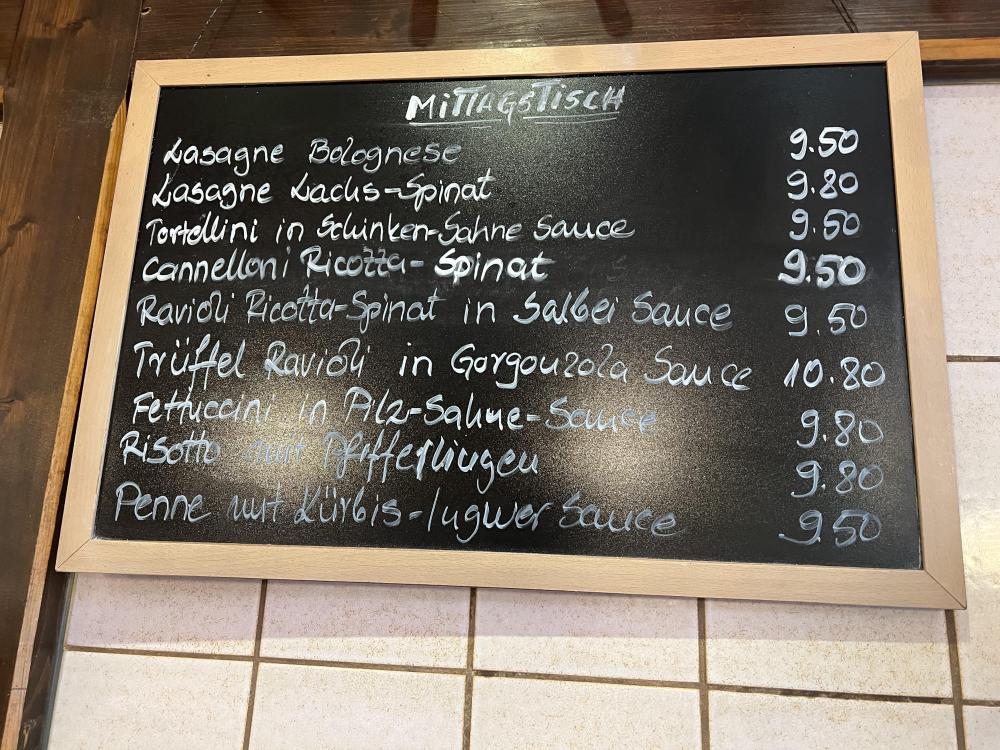 MITTAGSTISCH
Lasagne Bolognese 9.50
Lasagne Lachs-Spinat 9.80
Tortellini in Schinken-Sahne Sauce 9.50
Cannelloni Ricotta-Spinat 9.50
Ravioli Ricotta-Spinat in Salbei Sauce 9.50
Trüffel Ravioli in Gorgonzola Sauce 10.80
Fettuccini in Pilz-Sahne-Sauce 9.80
Risotto mit Pfifferlingen 9.80
Penne mit Kürbis-Ingwer Sauce 9.50